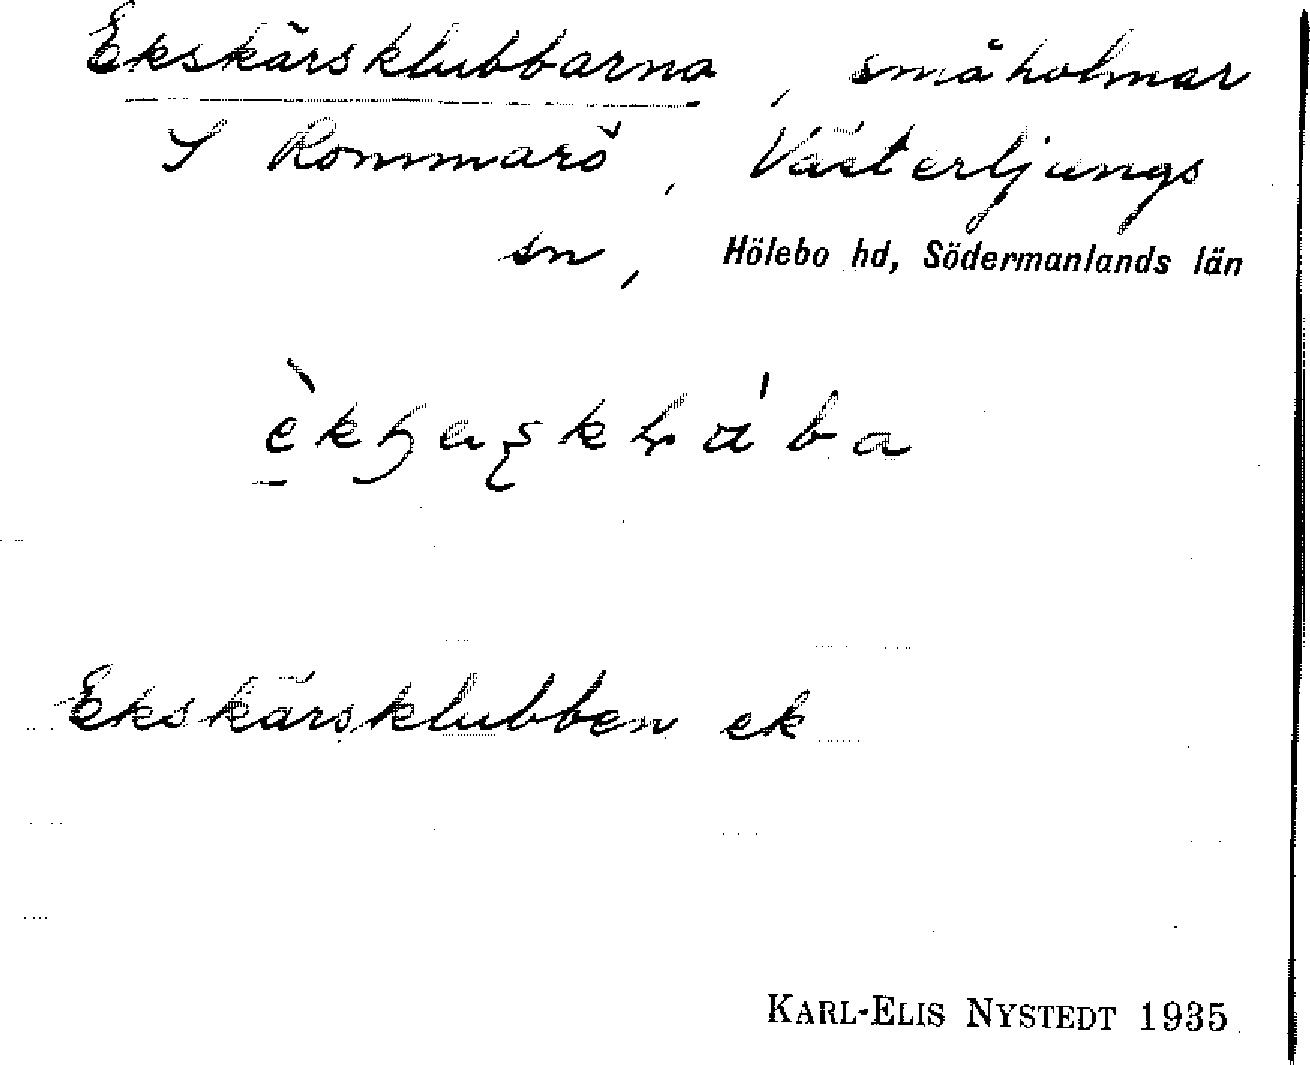 Ekskärsklubbarna, småholmar
S Rommarö, Västerljungs
sn, Hölebo hd, Södermanlands län
Ekskärsklubben ek
KARL-ELIS NYSTEDT 1935